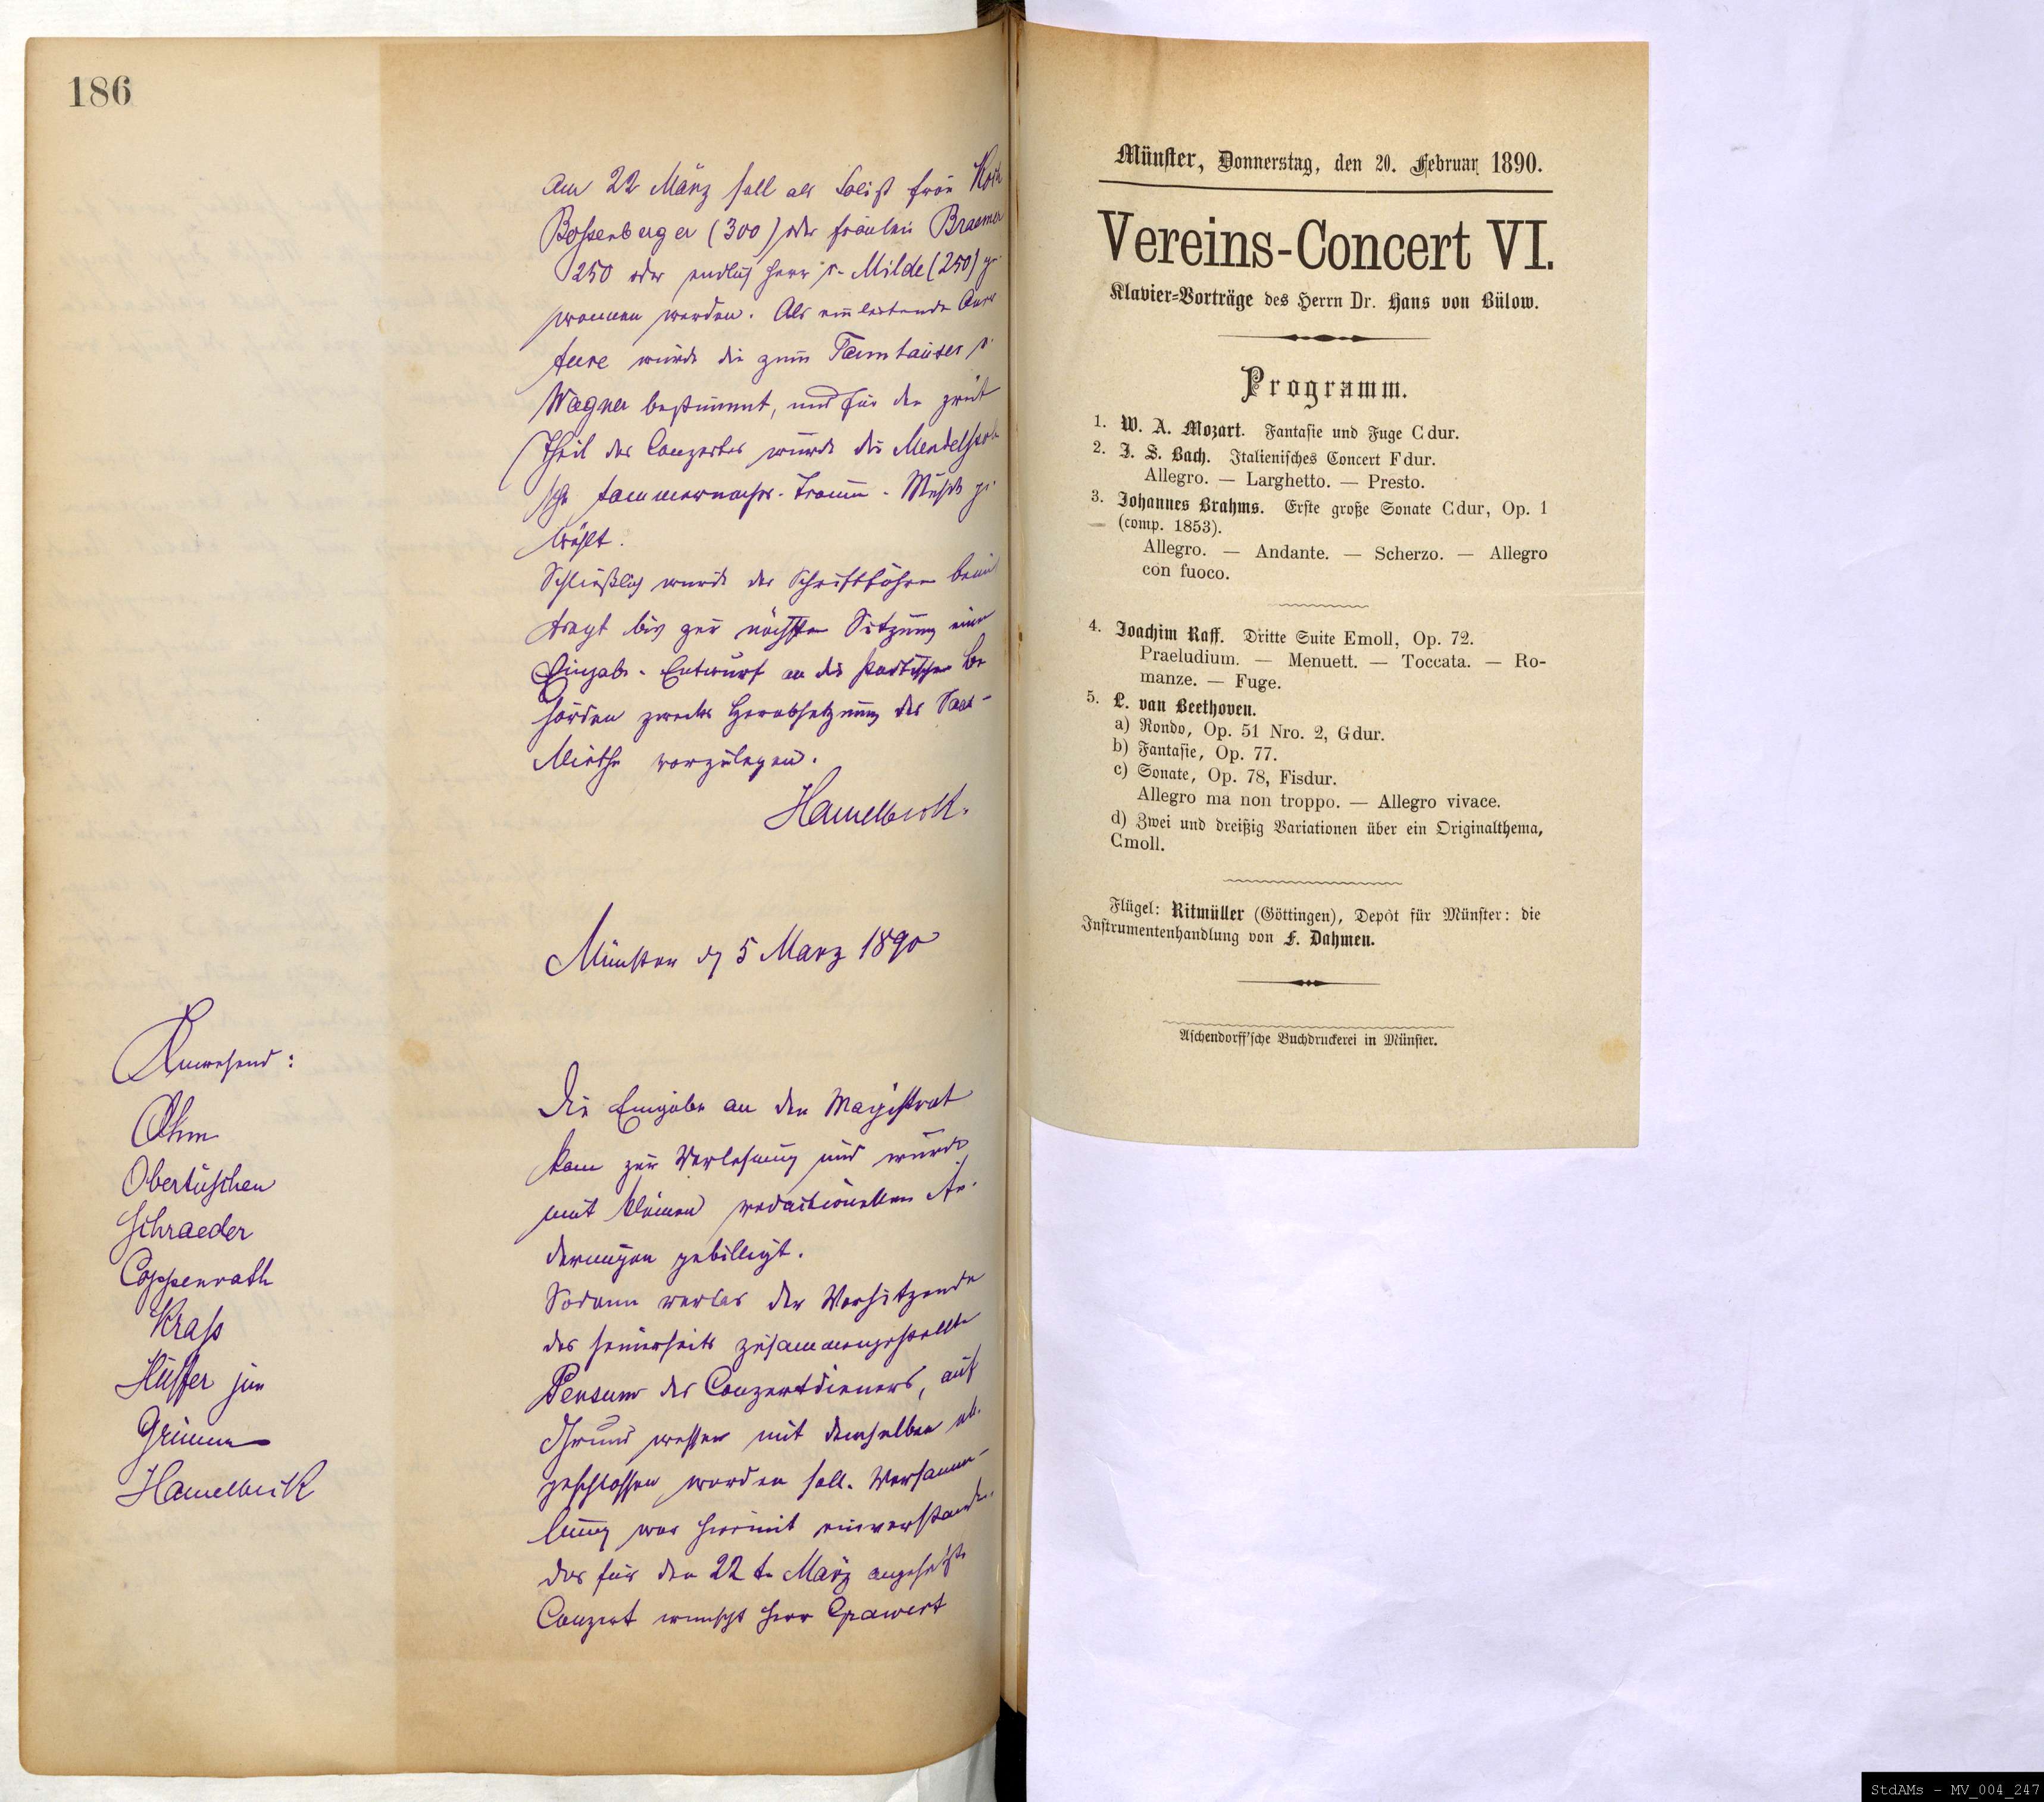 186
Am 22 März soll als Solist Frau Koch
Bossenberger (300) oder Fräulein Braemer
250 oder endlich Herr v. Milde (250) ge
wonnen werden. Als einleitende Ouver
ture wurde die zum Tannhäuser v.
Wagner bestimmt, und für den zweit
Theil des Conzertes wurde die Mendelssoh
sche Sommernachts-Traum-Musik ge
wählt.
Schließlich wurde der Schriftführer beauf
tragt bis zur nächsten Sitzung einen
Eingabe-Entwurf an die städtischen Be
hörden zwecks Herabsetzung der Saal-
Miethe vorzulegen.
Hamelbeck.
Münster d 5 März 1890
Anwesend:
Ohm
Obertüschen
Schraeder
Coppenrath
Krass
Hüffer jun
Grimm
Hamelbeck
Die Eingabe an den Magistrat
kam zur Verlesung und wurde
mit kleinen redactionellen Än-
derungen gebilligt.
Sodann verlas der Vorsitzende
das seinerseits zusammengestellte
Pensum des Conzertdieners, auf
Grund wessen mit demselben ab-
geschlossen werden soll. Versamm-
lung war hiermit einverstanden.
Das für den 22 t. März angesetzte
Conzert wünscht Herr Grawert
Münster, Donnerstag, den 20. Februar 1890.
Vereins-Concert VI.
Klavier-Vorträge des Herrn Dr. Hans von Bülow.
Programm.
1. W. A. Mozart. Fantasie und Fuge C dur.
2. J. S. Bach. Italienisches Concert F dur.
Allegro. — Larghetto. — Presto.
3. Johannes Brahms. Erste große Sonate C dur, Op. 1
(comp. 1853).
Allegro. — Andante. — Scherzo. — Allegro
con fuoco.
4. Joachim Raff. Dritte Suite E moll, Op. 72.
Praeludium. — Menuett. — Toccata. — Ro-
manze. — Fuge.
5. L. van Beethoven.
a) Rondo, Op. 51 Nro. 2, G dur.
b) Fantasie, Op. 77.
c) Sonate, Op. 78, Fis dur.
Allegro ma non troppo. — Allegro vivace.
d) Zwei und dreißig Variationen über ein Originalthema,
C moll.
Flügel: Ritmüller (Göttingen), Depôt für Münster: die
Instrumentenhandlung von F. Dahmen.
Aschendorff'sche Buchdruckerei in Münster.
StdAMs - MV_004_247